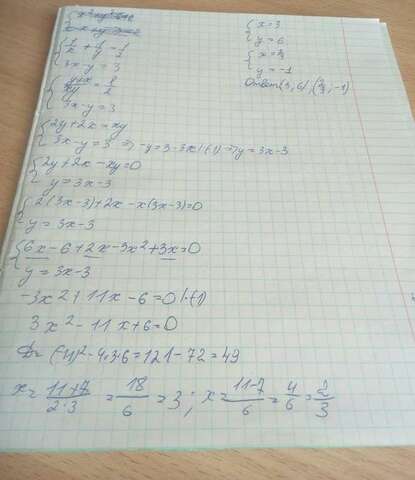 {1/x + 1/y = 1/2
3x-y=3
{y+x/xy = 1/2
3x-y=3
{2y+2x=xy
3x-y=3 ⇒ -y=3-3x|·(-1) ⇒ y=3x-3
{2y+2x-xy=0
y=3x-3
{2(3x-3)+2x-x(3x-3)=0
y=3x-3
{6x-6+2x-3x²+3x=0
y=3x-3
-3x²+11x-6=0|·(-1)
3x²-11x+6=0
D=(-11)²-4·3·6=121-72=49
x=11+7/2·3=18/6=3; x=11-7/6=4/6=2/3
{x=3
y=6
{x=2/3
y=-1
Ответ(3;6),(2/3;-1)